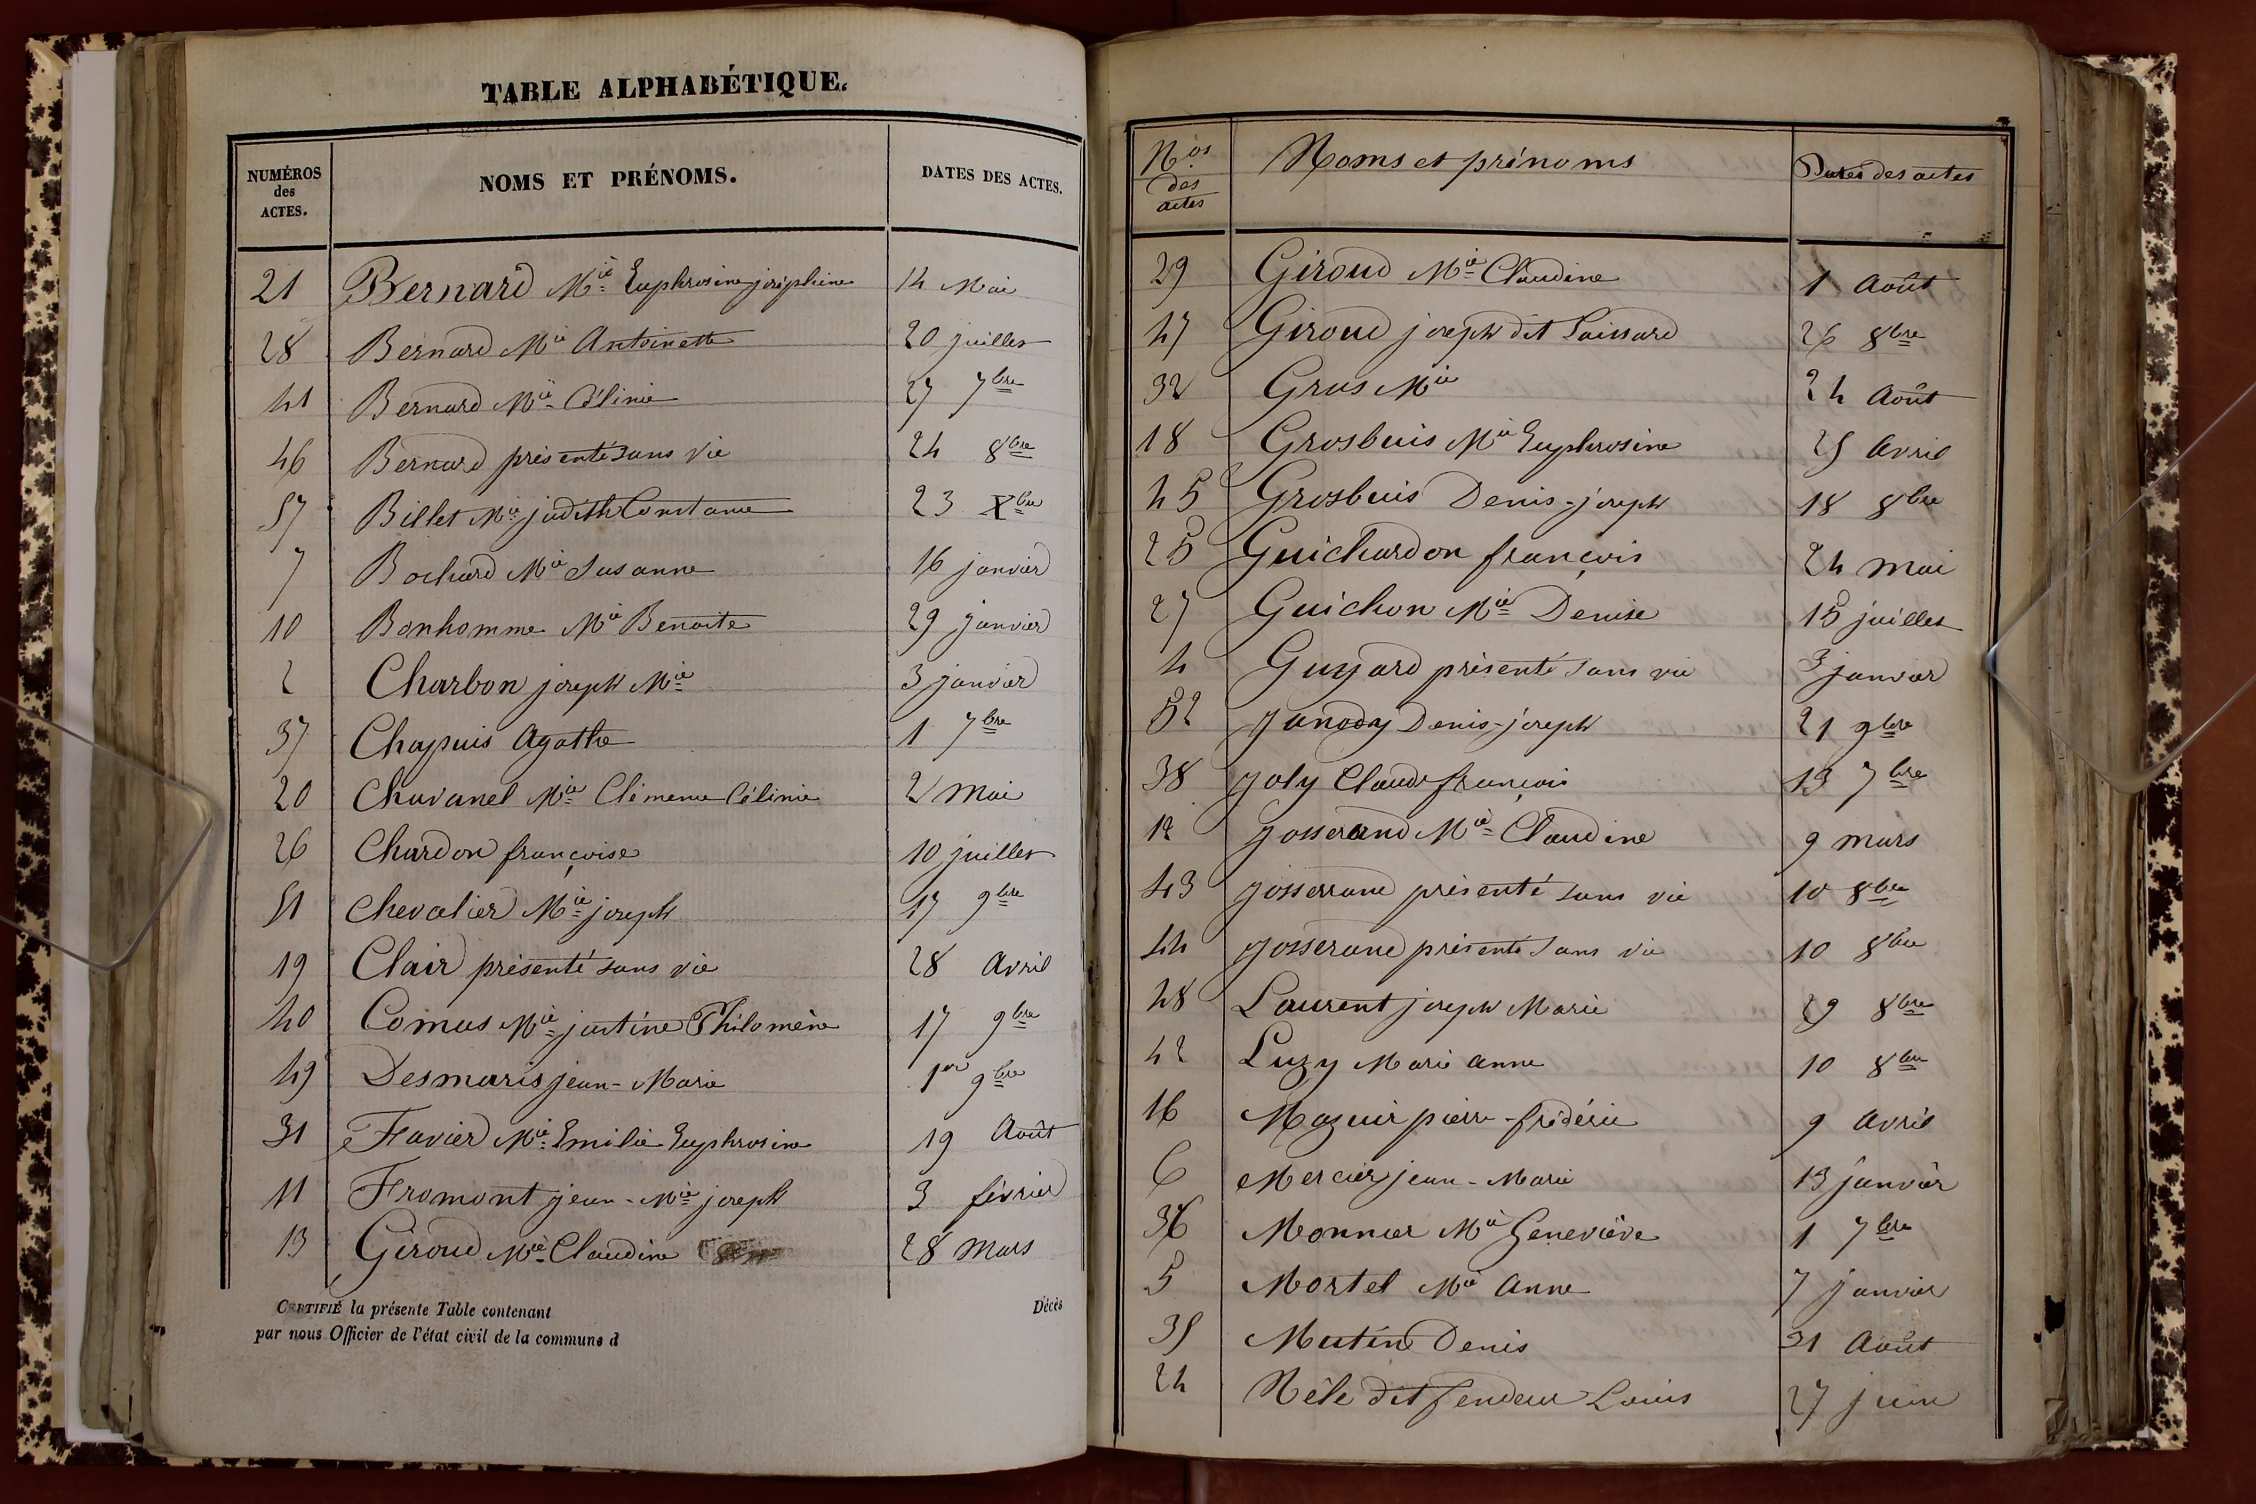 TABLE ALPHABÉTIQUE.
NUMÉROS des ACTES. NOMS ET PRÉNOMS. DATES DES ACTES.
21 Bernard Mie Euphrosine joséphine 14 Mai
28 Bernard Mie Antoinette 20 juillet
41 Bernard Mie Célinie 27 7bre
46 Bernard présenté sans vie 24 8bre
57 Billet Mie judith Constance 23 Xbre
7 Bochard Mie Susanne 16 janvier
10 Bonhomme Mie Benoite 29 janvier
2 Charbon joseph Mie 3 janvier
37 Chapuis Agathe 1 7bre
20 Chavanel Mie Clémence Célinie 2 Mai
26 Chardon françoise 10 juillet
51 Chevalier Mie joseph 17 9bre
19 Clair présenté sans vie 28 Avril
40 Comas Mie justine Philomène 17 9bre
49 Desmaris jean-Marie 1er 9bre
31 Favier Mie Emilie Euphrosine 19 Août
11 Fromont jean-Mie joseph 3 février
13 Giroud Mie Claudine 28 Mars
CERTIFIÉ la présente Table contenant Décès
par nous Officier de l'état civil de la commune d
Nos des actes Noms et prénoms Dates des actes
29 Giroud Mie Claudine 1 Août
47 Giroud joseph dit 26 8bre
32 Gras Mie 24 Août
18 Grosbuis Mie Euphrosine 25 Avril
45 Grosbuis Denis-joseph 18 8bre
25 Guichardon françois 24 mai
27 Guichon Mie Denise 15 juillet
4 Guyard présenté sans vie 3 janvier
52 Janody Denis-joseph 21 9bre
38 Joly Claude françois 13 7bre
12 Josserand Mie Claudine 9 mars
43 Josserand présenté sans vie 10 8bre
44 Josserand présenté sans vie 10 8bre
48 Laurent joseph Marie 29 8bre
42 Luzy Marie Anne 10 8bre
16 Mazuir pierre-frédéric 9 Avril
6 Mercier jean-Marie 13 janvier
36 Monnier Mie Geneviève 1 7bre
5 Mortel Mie Anne 7 janvier
35 Mutin Denis 31 Août
24 Nèle dit Louis 27 juin